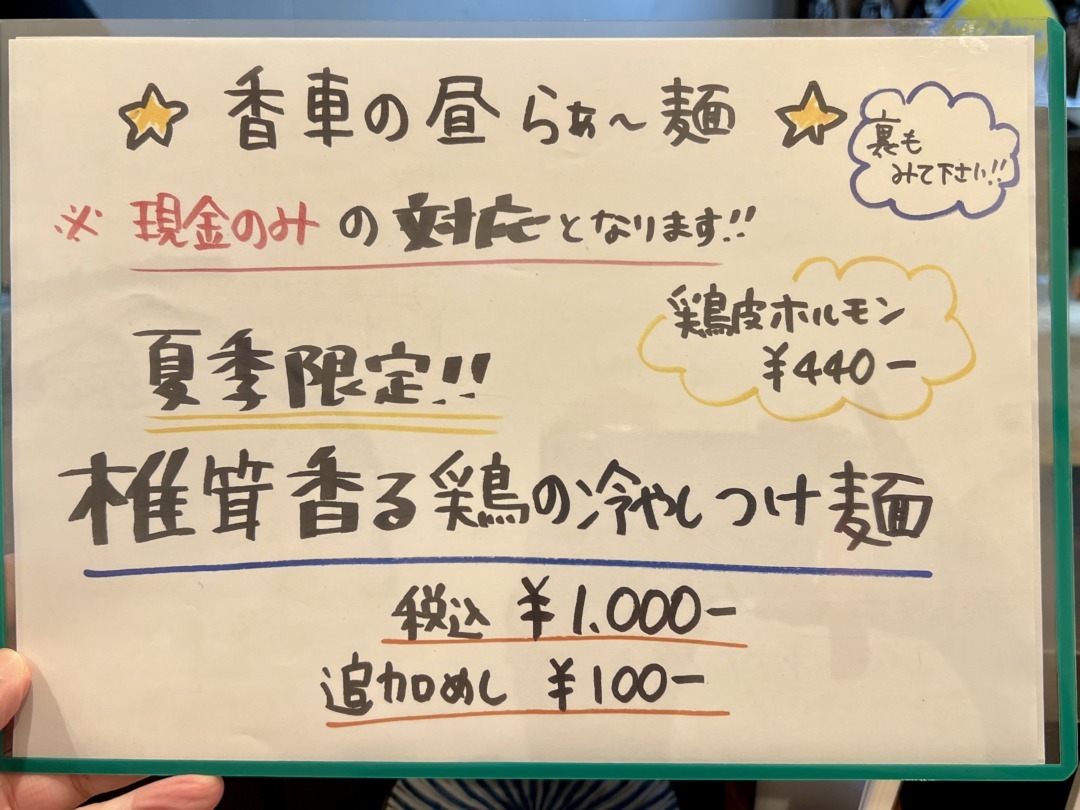 香車の昼らぁ〜麺
裏も
みて下さい!!
※現金のみの対応となります!!
鶏皮ホルモン
¥440ー
夏季限定!!
椎茸香る鶏の冷やしつけ麺
税込 ¥1.000ー
追加めし ¥100ー